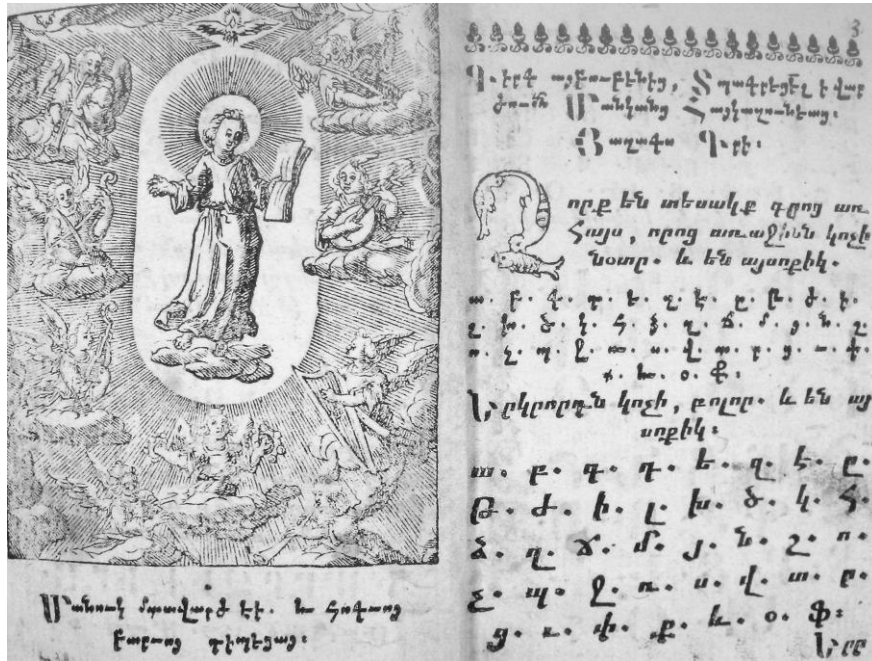 Մանուկ մտավարժ էի. և հոգւոյ
բարւոյ դիպեցայ։
3
Գիրք այբուբենից, Տպագրեցեալ ի վար
ժումն Մանկանց Հայկազունեաց։
Յաղագս Գրի։
Որք են տեսակք գրոց առ
Հայս, որոց առաջինն կոչի
նօտր. և են այսոքիկ.
ա. բ. գ. դ. ե. զ. է. ը. թ. ժ. ի.
լ. խ. ծ. կ. հ. ձ. ղ. ճ. մ. յ. ն. շ.
ո. չ. պ. ջ. ռ. ս. վ. տ. ր. ց. ւ. փ.
ք. և. օ. ֆ։
Երկրորդն կոչի, բոլոր. և են այ
սոքիկ։
ա. բ. գ. դ. ե. զ. է. ը.
թ. ժ. ի. լ. խ. ծ. կ. հ.
ձ. ղ. ճ. մ. յ. ն. շ. ո.
չ. պ. ջ. ռ. ս. վ. տ. ր.
ց. ւ. փ. ք. և. օ. ֆ։
Երր